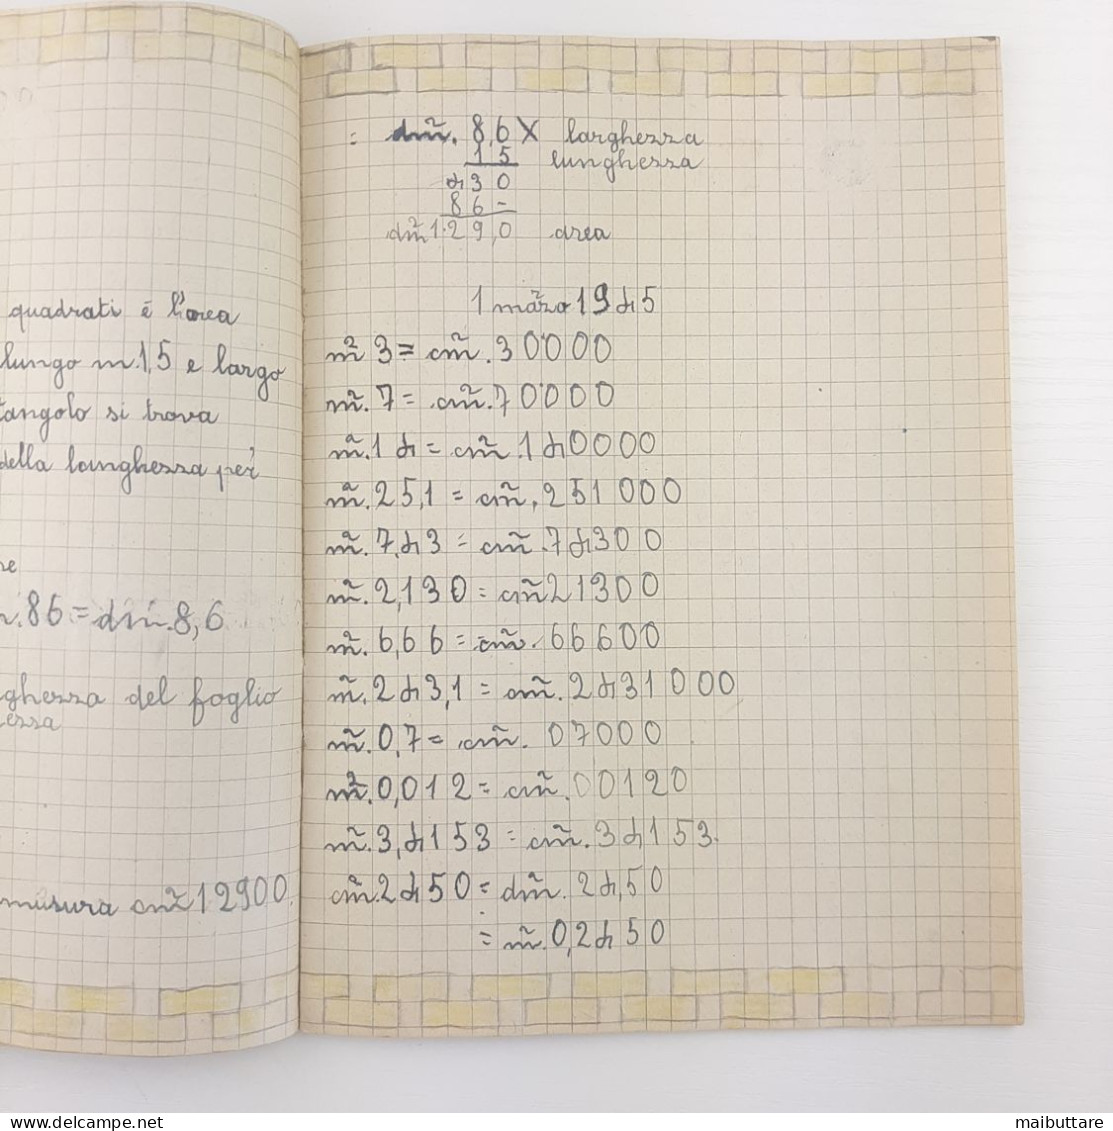 quadrati é l'area
lungo m.1,5 e largo
tangolo si trova
della lunghezza per
re
86 = dm.8,6
ghezza del foglio
ezza
misura cm² 12900
= dm². 8,6 X larghezza
15 lunghezza
430
86-
dm² 1.29,0 area
1 marzo 1945
m² 3 = cm². 30000
m². 7 = cm². 70000
m². 14 = cm². 140000
m². 25,1 = cm². 251000
m². 7,43 = cm². 74300
m². 2,130 = cm² 21300
m². 6,66 = cm². 66600
m². 243,1 = cm². 2431000
m². 0,7 = cm². 07000
m². 0,012 = cm². 00120
m². 3,4153 = cm². 34153.
cm². 2450 = dm². 24,50
= m². 0,2450
www.delcampe.net
maibuttare